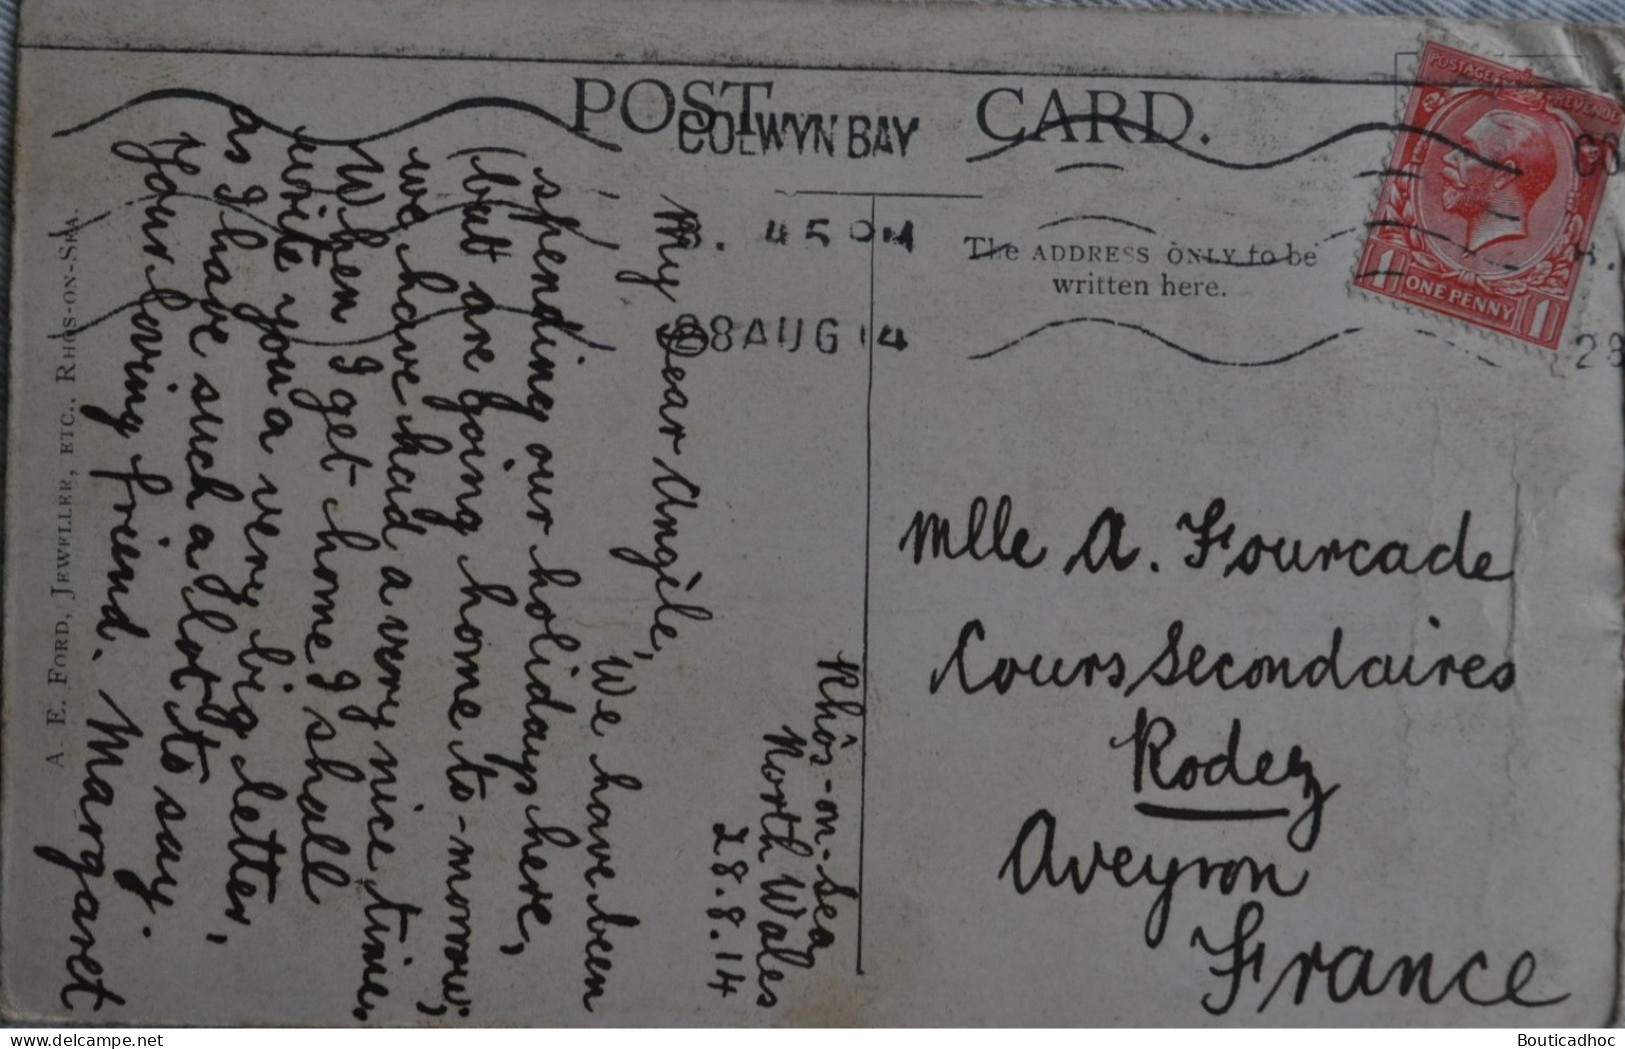 POST CARD.
COLWYN BAY
4 5 PM
28 AUG 14
The ADDRESS ONLY to be
written here.
POSTAGE REVENUE
1 ONE PENNY 1
CO
28
Rhôs-on-Sea
North Wales
28.8.14
My Dear Angèle,
We have been
spending our holidays here,
(but are going home to-morrow;
we have had a very nice time.
When I get home I shall
write you a very big letter,
as I have such a lot to say.
Your loving friend. Margaret
A. E. FORD, JEWELLER, ETC., RHOS-ON-SEA.
Mlle A. Fourcade
Cours Secondaires
Rodez
Aveyron
France
Bouticadhoc